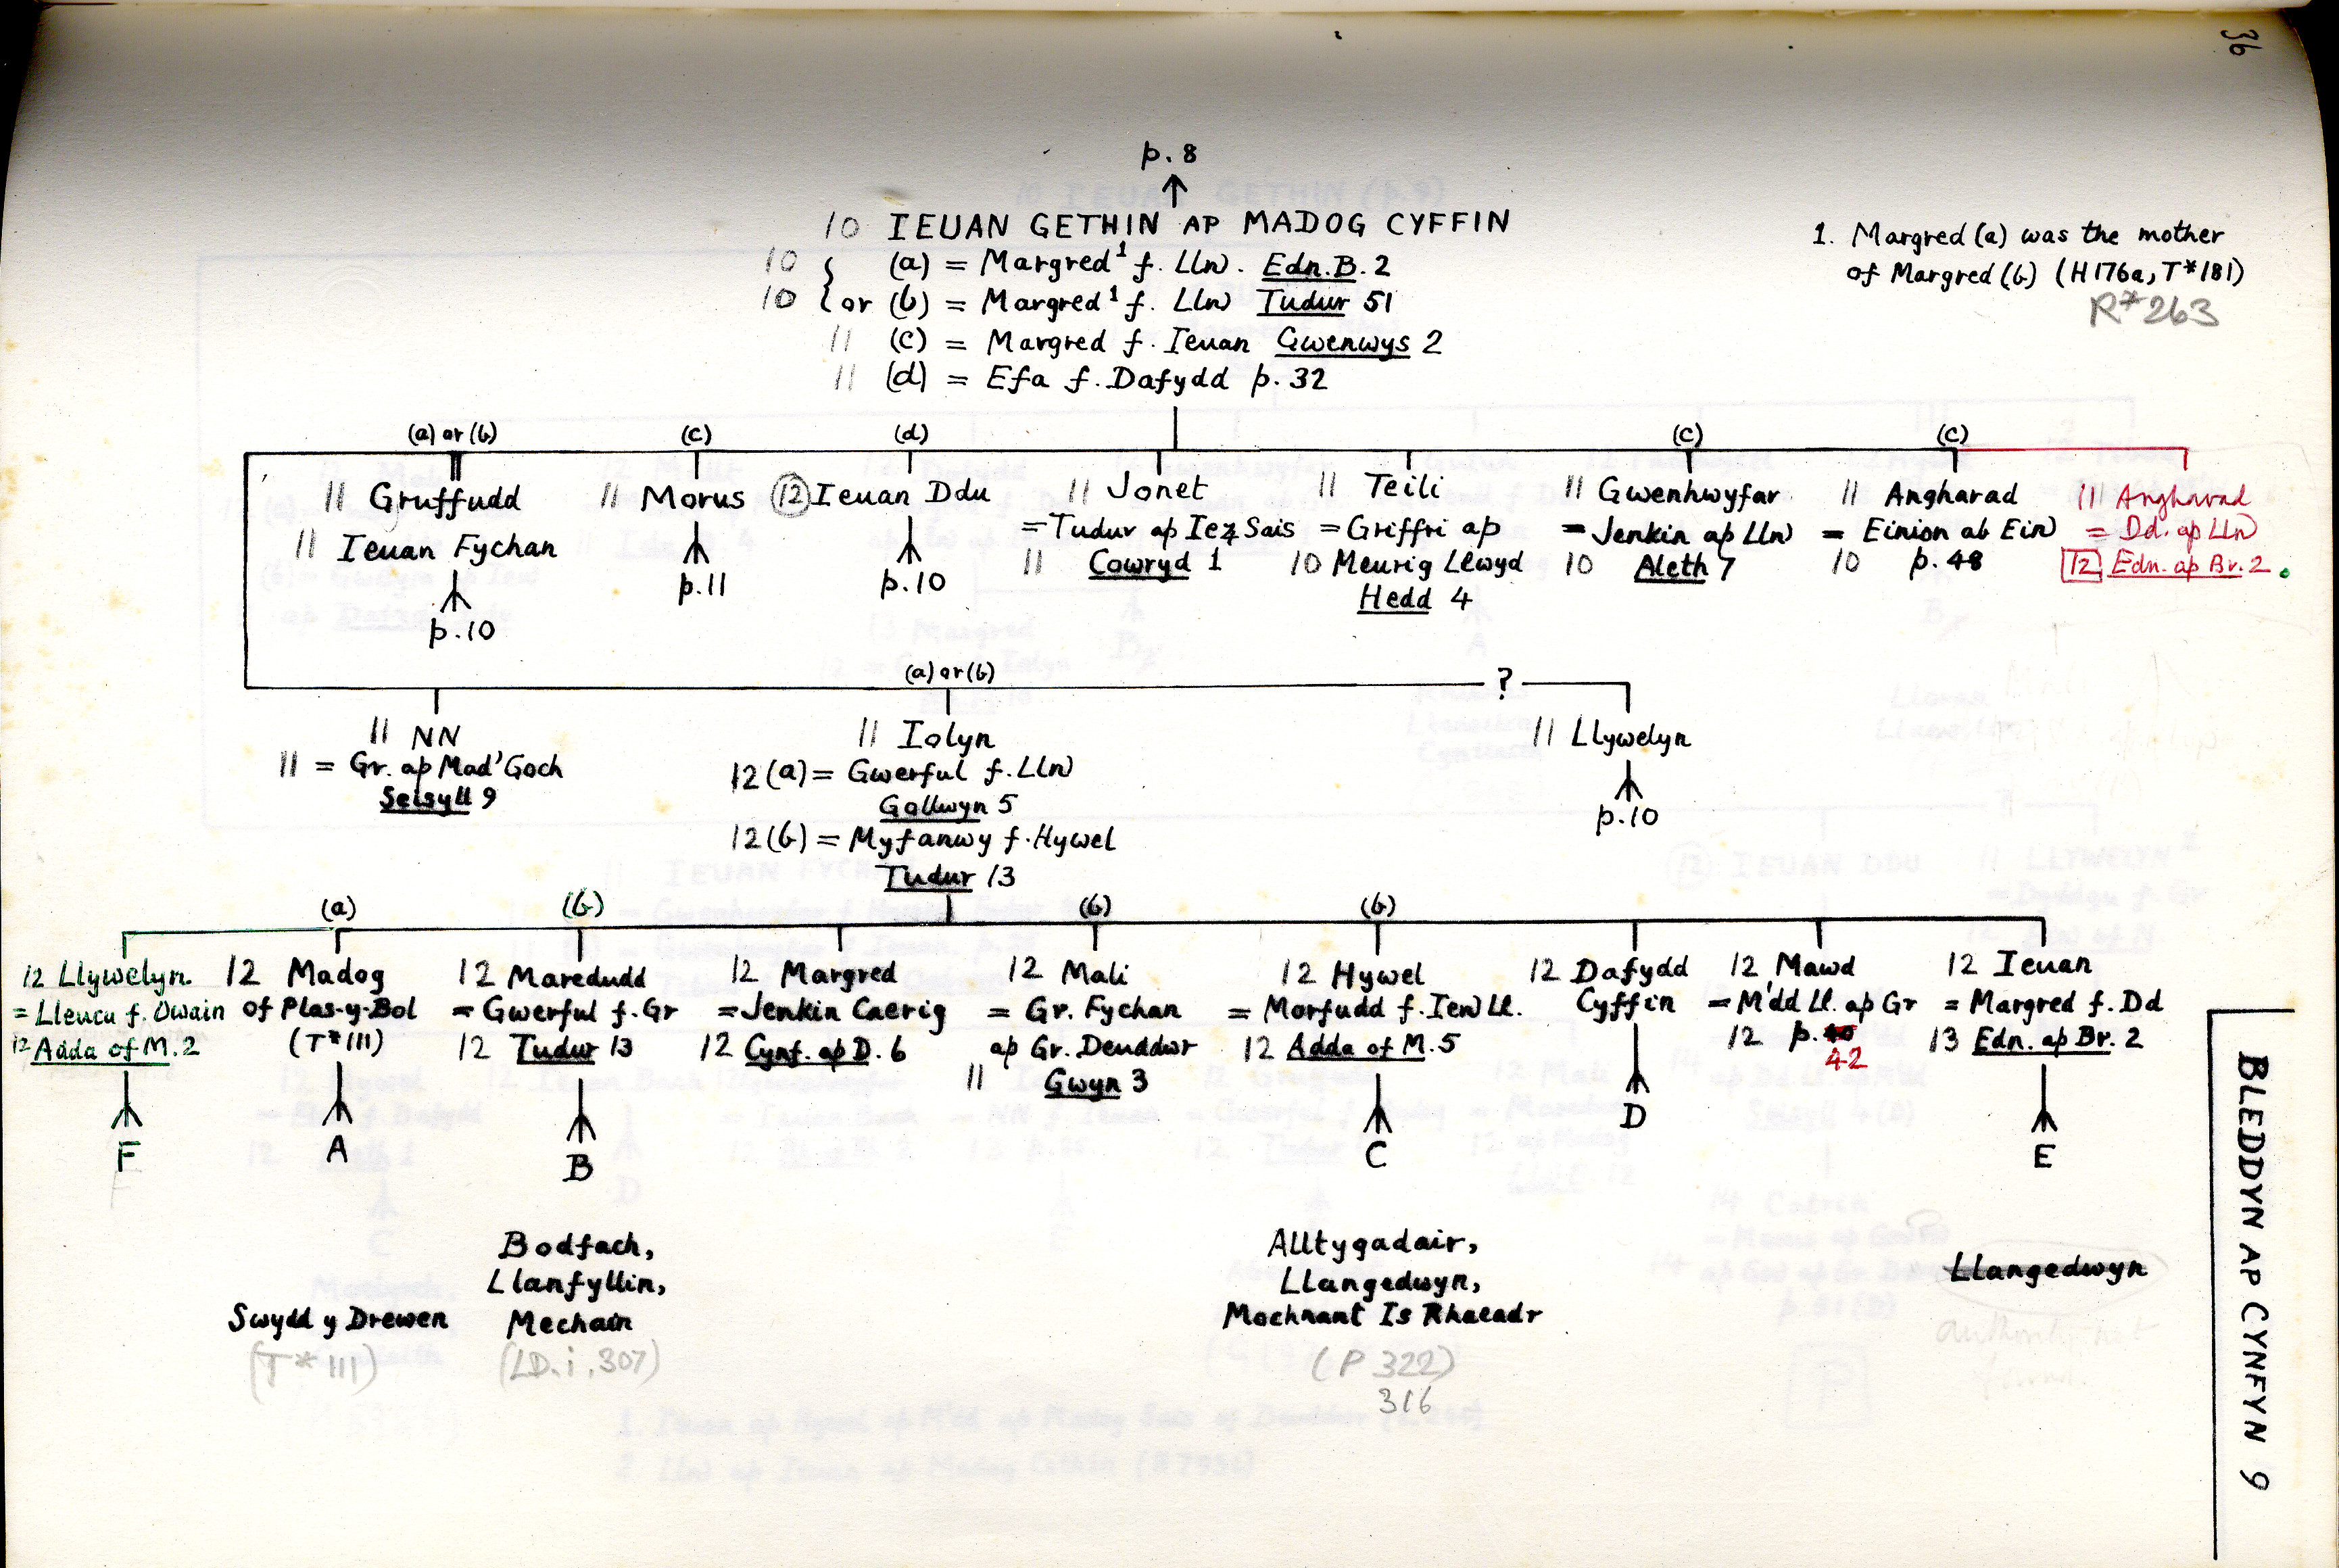 36
p. 8
10 IEUAN GETHIN AP MADOG CYFFIN
10 { (a) = Margred¹ f. Lln). Edn. B. 2
10 { or (b) = Margred¹ f. Lln) Tudur 51
11 (c) = Margred f. Ieuan Gwenwys 2
11 (d) = Efa f. Dafydd p. 32
1. Margred (a) was the mother
of Margred (b) (H176a, T*181)
R*263
(a) or (b)
11 Gruffudd
11 Ieuan Fychan
p.10
(c)
11 Morus
p.11
(d)
12 Ieuan Ddu
p.10
11 Jonet
= Tudur ap Ieuz Sais
11 Cowryd 1
11 Teili
= Griffri ap
10 Meurig Llwyd
Hedd 4
(c)
11 Gwenhwyfar
= Jenkin ap Lln)
10 Aleth 7
(c)
11 Angharad
= Einion ab Ein)
10 p. 48
11 Angharad
= Dd. ap Lln)
12 Edn. ap Br. 2.
11 NN
11 = Gr. ap Mad' Goch
Seisyll 9
(a) or (b)
11 Iolyn
12 (a) = Gwerful f. Lln)
Gollwyn 5
12 (b) = Myfanwy f. Hywel
Tudur 13
?
11 Llywelyn
p.10
12 Llywelyn.
= Lleucu f. Owain
12 Adda of M. 2
F
(a)
12 Madog
of Plas-y-Bol
(T*111)
A
(b)
12 Maredudd
= Gwerful f. Gr
12 Tudur 13
B
12 Margred
= Jenkin Caerig
12 Cynf. ap D. 6
(b)
12 Mali
= Gr. Fychan
ap Gr. Deuddwr
11 Gwyn 3
(b)
12 Hywel
= Morfudd f. Ieu) Ll.
12 Adda of M. 5
C
12 Dafydd
Cyffin
D
12 Mawd
= M'dd Ll. ap Gr
12 p. 40
42
12 Ieuan
= Margred f. Dd
13 Edn. ap Br. 2
E
Swydd y Drewen
(T*111)
Bodfach,
Llanfyllin,
Mechain
(LD. i. 307)
Alltygadair,
Llangedwyn,
Mochnant Is Rhaeadr
(P 322)
316
Llangedwyn
BLEDDYN AP CYNFYN 9